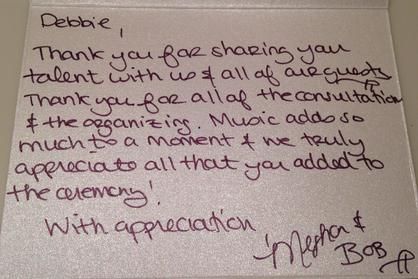 Debbie,
Thank you for sharing you
talent with us & all of our guests
Thank you for all of the consultation
& the organizing. Music adds so
much to a moment & we truly
appreciate all that you added to
the ceremony!
With appreciation
Meghan &
Bob